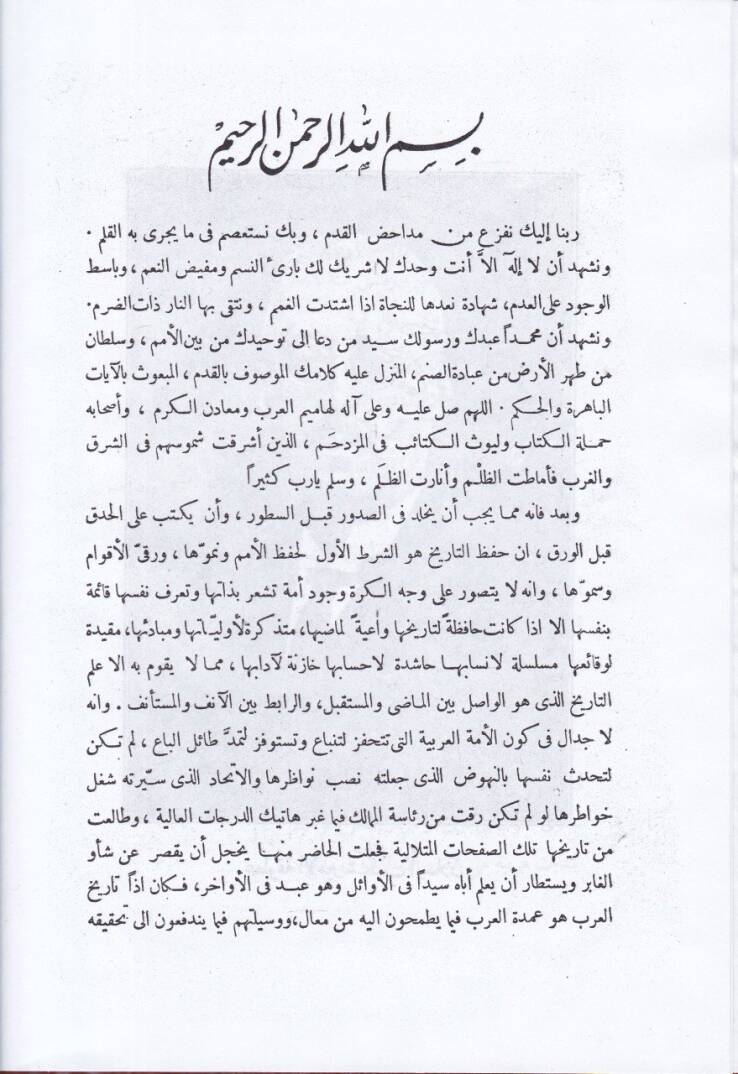 بِسِمِ اللّٰهِ الرحمٰن الرحيم
ربنا إليك نفزع من مداحض القدم ، وبك نستعصم فى ما يجرى به القلم ٠
ونشهد أن لا إلٓه الاَّ أنت وحدك لا شريك لك بارئ النسم ومفيض النعم ، وباسط
الوجود على العدم، شهادة نعدها للنجاة اذا اشتدت الغمم ، ونتقى بها النار ذات الضرم٠
ونشهد أن محمداً عبدك ورسولك سيد من دعا الى توحيدك من بين الأمم ، وسلطان
من طهر الأرض من عبادة الصنم، المنزل عليه كلامك الموصوف بالقدم ، المبعوث بالآيات
الباهرة والحكم ٠ اللهم صل عليه وعلى آله لهاميم العرب ومعادن الكرم ، وأصحابه
حملة الكتاب وليوث الكتائب فى المزدحَم ، الذين أشرقت شموسهم فى الشرق
والغرب فأماطت الظلْم وأنارت الظلَم ، وسلم يارب كثيراً
وبعد فانه مما يجب أن يخلد فى الصدور قبل السطور ، وأن يكتب على الحدق
قبل الورق ، ان حفظ التاريخ هو الشرط الأول لحفظ الأمم ونموّها ، ورقىّ الأقوام
وسموّها ، وانه لا يتصور على وجه الكرة وجود أمة تشعر بذاتها وتعرف نفسها قائمة
بنفسها الا اذا كانت حافظةً لتاريخها واعيةً لماضيها، متذكرة لأوليّاتها ومبادئها، مقيدة
لوقائعها مسلسلة لانسابها حاشدة لاحسابها خازنة لآدابها ، مما لا يقوم به الا علم
التاريخ الذى هو الواصل بين الماضى والمستقبل، والرابط بين الآنف والمستأنف . وانه
لا جدال فى كون الأمة العربية التى تتحفز لتنباع وتستوفز لتمدَّ طائل الباع ، لم تكن
لتحدث نفسها بالنهوض الذى جعلته نصب نواظرها والاتحاد الذى سيّرته شغل
خواطرها لو لم تكن رقت من رئاسة الممالك فيما غبر هاتيك الدرجات العالية ، وطالعت
من تاريخها تلك الصفحات المتلالية فجعلت الحاضر منها يخجل أن يقصر عن شأو
الغابر ويستطار أن يعلم أباه سيداً فى الأوائل وهو عبد فى الأواخر، فكان اذاً تاريخ
العرب هو عمدة العرب فيما يطمحون اليه من معال،ووسيلتهم فيما يندفعون الى تحقيقه